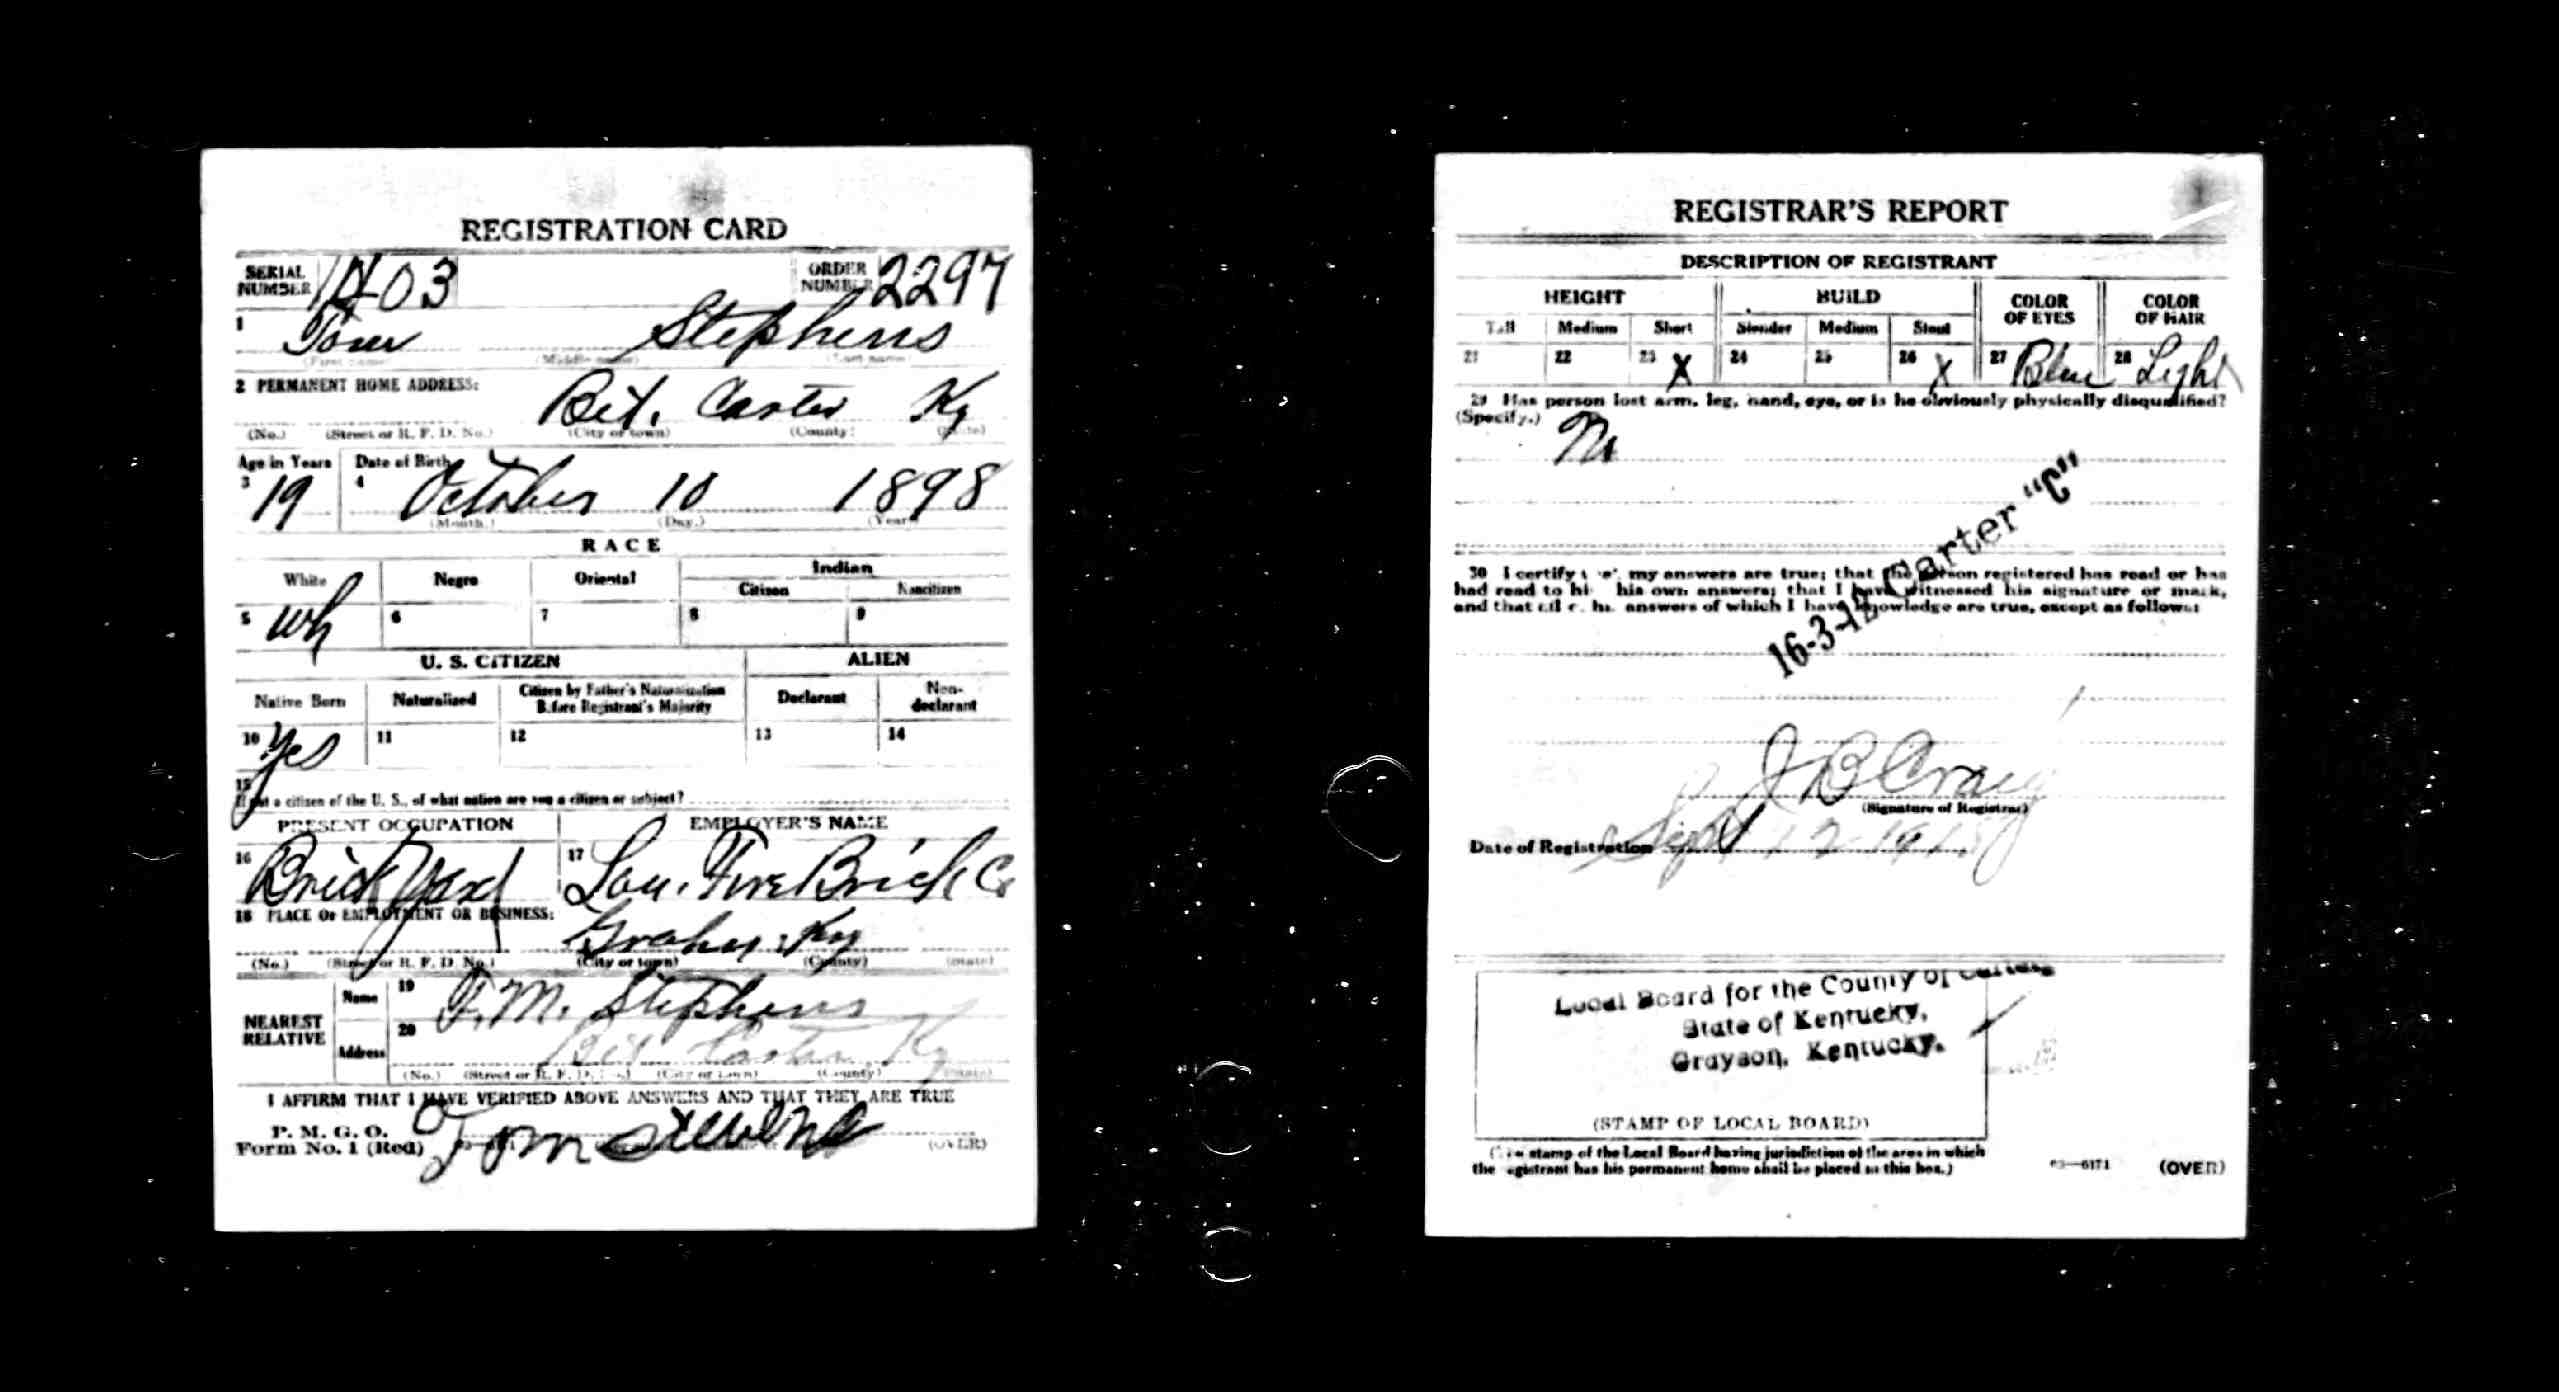 REGISTRATION CARD
SERIAL NUMBER 1403 ORDER NUMBER 2297
1 Tom Stephens
(First name) (Middle name) (Last name)
2 PERMANENT HOME ADDRESS:
Bet. Carter Ky
(No.) (Street or R. F. D. No.) (City or town) (County) (State)
Age in Years Date of Birth
3 19 4 October 10 1898
(Month.) (Day.) (Year)
RACE
White Negro Oriental Indian
Citizen Noncitizen
5 wh 6 7 8 9
U. S. CITIZEN ALIEN
Native Born Naturalized Citizen by Father's Naturalization Before Registrant's Majority Declarant Non-declarant
10 Yes 11 12 13 14
15
If not a citizen of the U. S., of what nation are you a citizen or subject?
PRESENT OCCUPATION EMPLOYER'S NAME
16 Brick Yard 17 Lou. Fire Brick Co
18 PLACE OF EMPLOYMENT OR BUSINESS:
Ky
(No.) (Street or R. F. D. No.) (City or town) (County) (State)
NEAREST RELATIVE
Name 19 F. M. Stephens
Address 20 Bet Carter Ky
(No.) (Street or R. F. D. No.) (City or town) (County) (State)
I AFFIRM THAT I HAVE VERIFIED ABOVE ANSWERS AND THAT THEY ARE TRUE
P. M. G. O.
Form No. 1 (Red) Tom (OVER)
REGISTRAR'S REPORT
DESCRIPTION OF REGISTRANT
HEIGHT BUILD COLOR OF EYES COLOR OF HAIR
Tall Medium Short Slender Medium Stout
21 22 23 X 24 25 26 X 27 Blue 28 Light
29 Has person lost arm, leg, hand, eye, or is he obviously physically disqualified?
(Specify.) No
30 I certify that my answers are true; that the person registered has read or has
had read to him his own answers; that I have witnessed his signature or mark,
and that all of his answers of which I have knowledge are true, except as follows:
16-3-12 Carter "C"
J B Craig
(Signature of Registrar)
Date of Registration Sept 12 1918
Local Board for the County of Carter,
State of Kentucky,
Grayson, Kentucky.
(STAMP OF LOCAL BOARD)
(The stamp of the Local Board having jurisdiction of the area in which
the registrant has his permanent home shall be placed in this box.)
03—6171 (OVER)